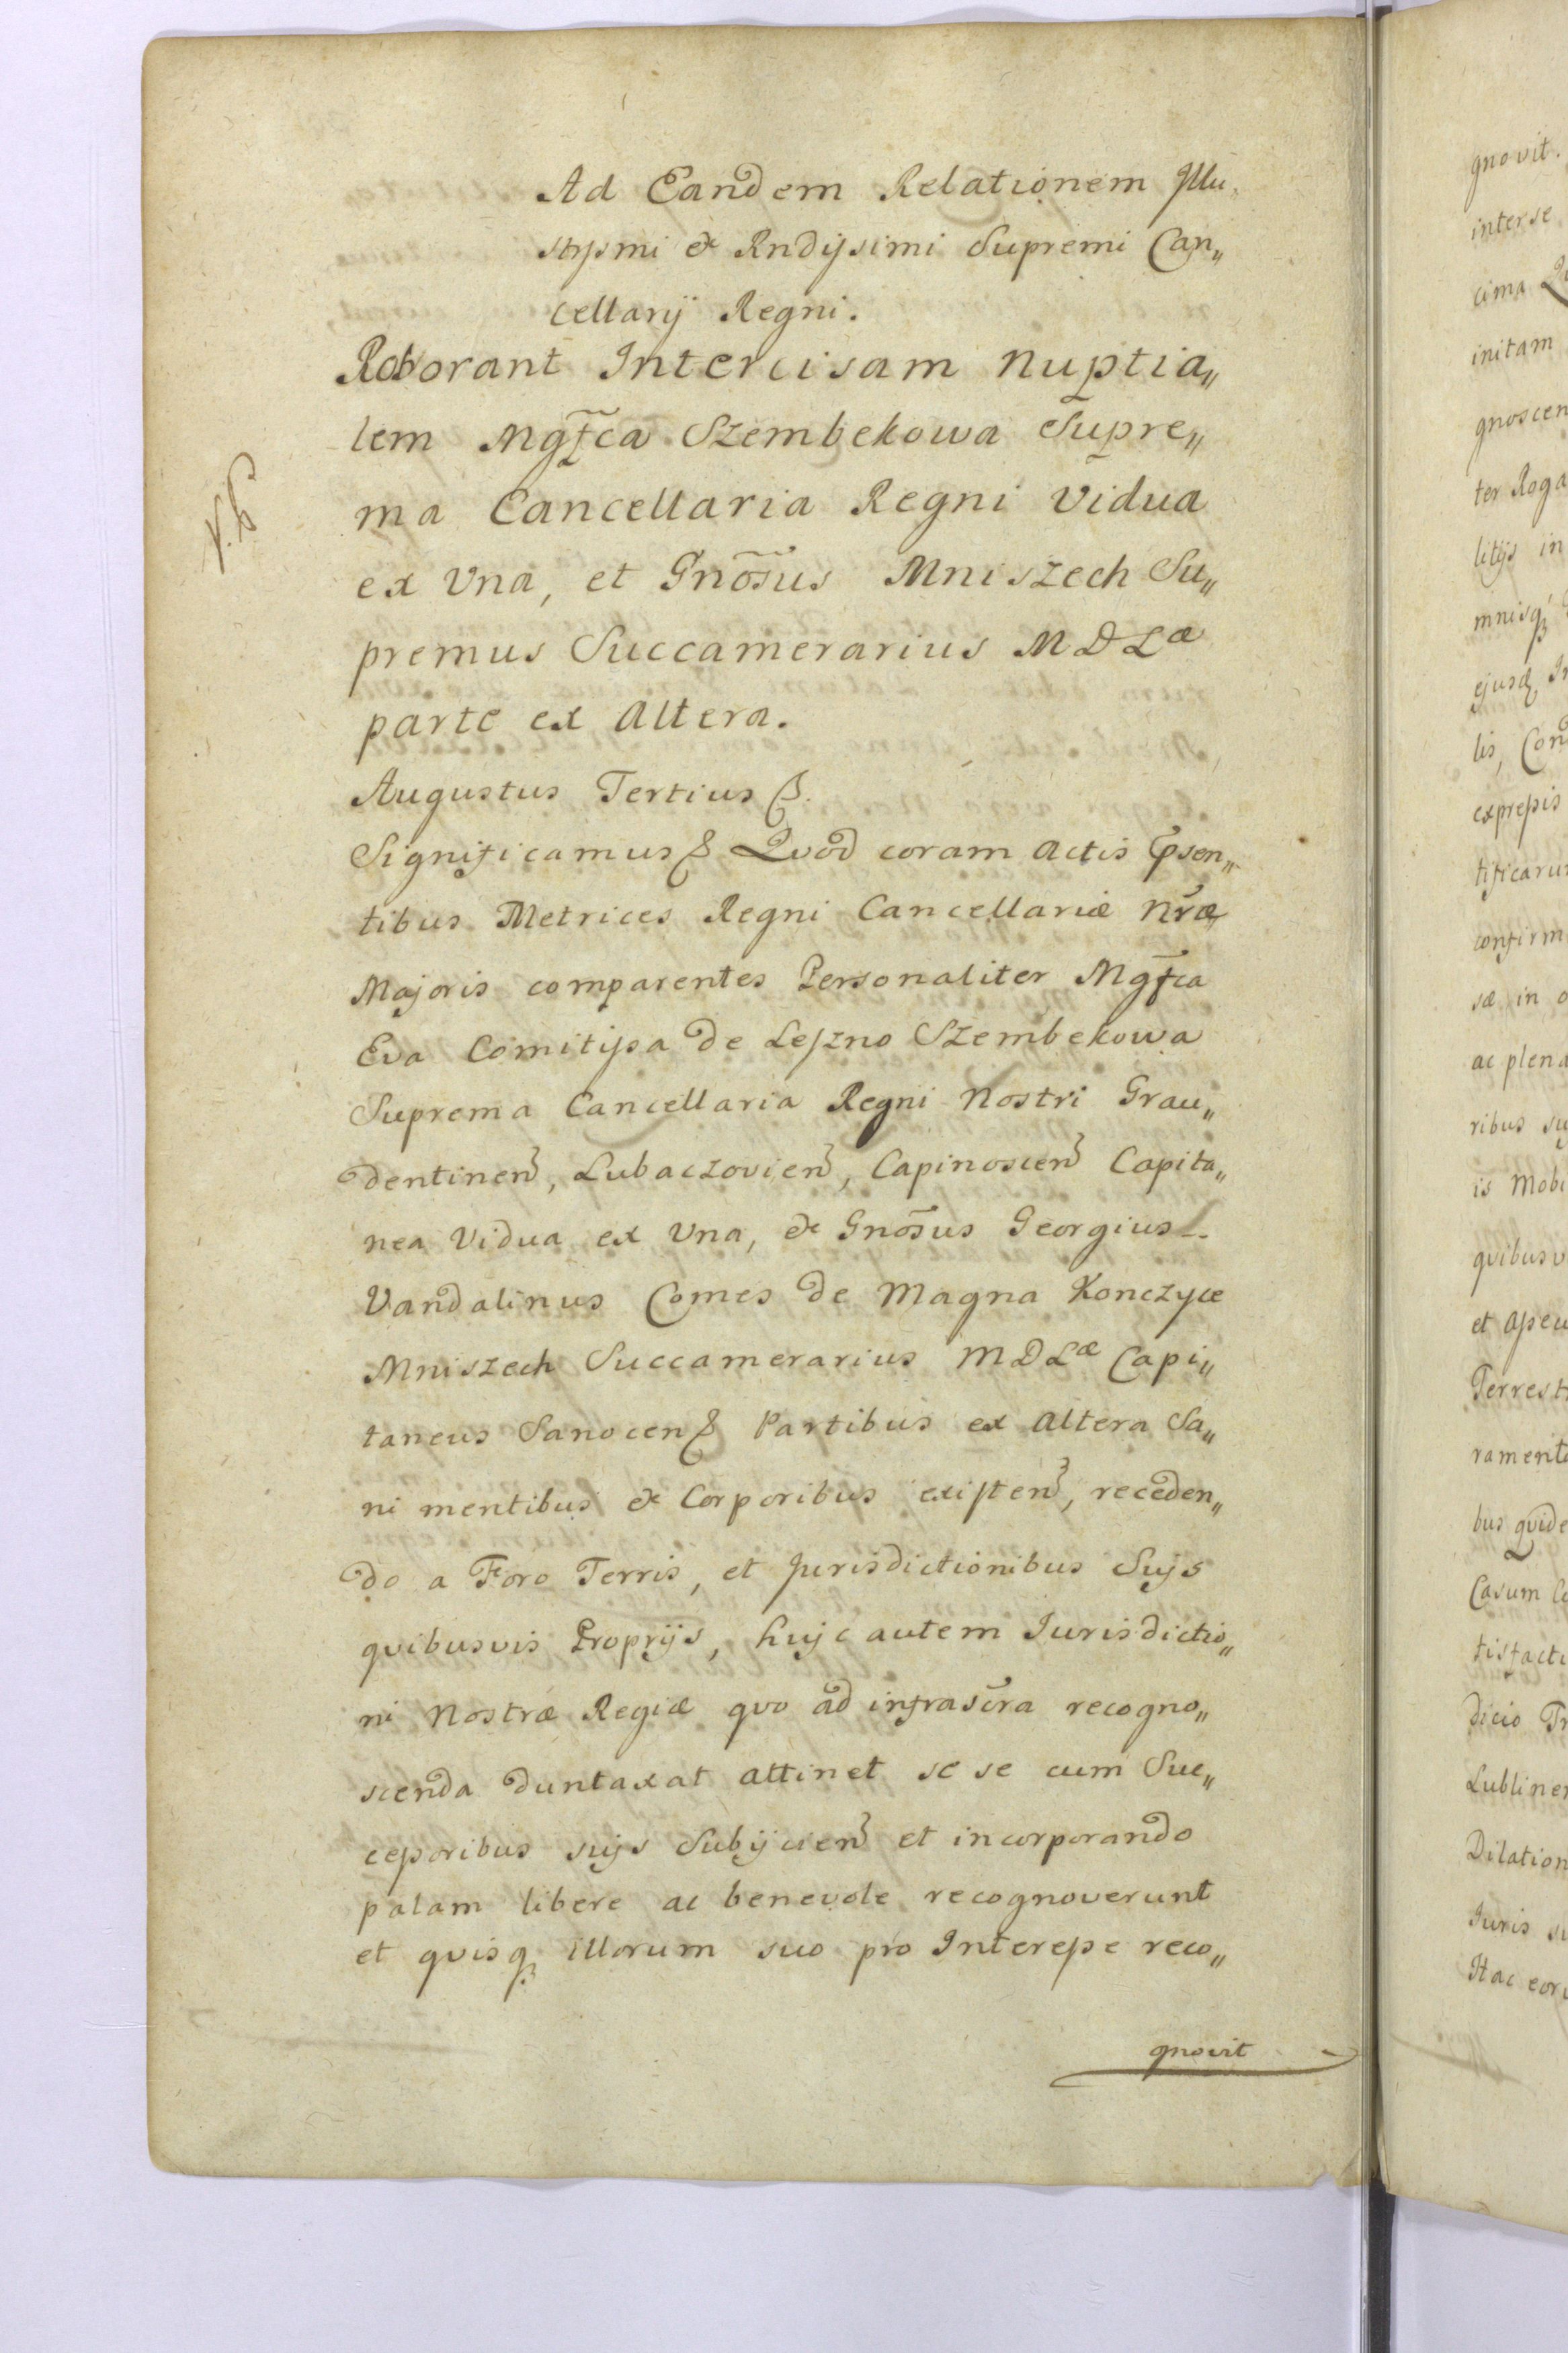 Ad Eandem Relationem Illu„
strysmi & Rndyssimi Supremi Can„
cellarÿ Regni.
Roborant Intercisam Nuptia„
lem Mgf̃ca Szembekowa Supre„
ma Cancellaria Regni Vidua
ex Vna, et Gnõsus Mniszech Su„
premus Succamerarius M D Læ
parte ex Altera.
Augustus Tertius &.
Significamus & Quod coram Actis Psen„
tibus Metrices Regni Cancellariæ Nræ
Majoris comparentes Personaliter Mgf̃ca
Eva Comitissa de Leszno Szembekowa
Suprema Cancellaria Regni Nostri Grau„
dentinen, Lubaczovien, Capinoscen Capita„
nea Vidua ex Vna, & Gnõsus Georgius
Vandalinus Comes de Magna Konczyce
Mniszech Succamerarius M D Læ Capi„
taneus Sanocen & Partibus ex Altera Sa„
ni mentibus & Corporibus existen, receden„
do a Foro Terris, et Jurisdictionibus Suÿs
quibusvis Proprÿs, huÿc autem Jurisdictio„
ni Nostræ Regiæ quo ad infrascra recogno„
scenda duntaxat attinet se se cum Suc„
cessoribus suÿs Subÿcien et incorporando
palam libere ac benevole recognoverunt
et quisq illorum suo pro Interesse reco„
gnovit
gnovit.
interse
cima
initam
gnoscen
ter Roga
litÿs in
mnisq
ejusd
lis, Con
expressis
tificaru
confirm
sæ in o
ac plena
ribus su
is Mobi
quibusv
et assecu
Terrest
ramento
bus quide
Casum
tisfacti
dicio
Lubliner
Dilation
Juris su
Itac eor